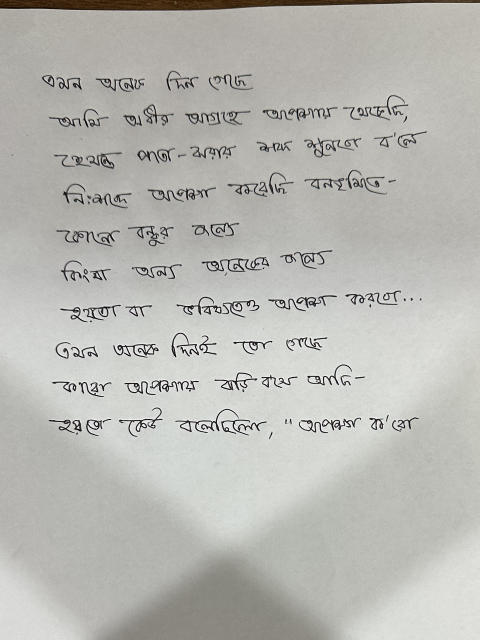 এমন অনেক দিন গেছে
আমি অধীর আগ্রহে অপেক্ষায় থেকেছি,
হেমন্তে পাতা-ঝরার শব্দ শুনবো ব'লে
নিঃশব্দে অপেক্ষা করেছি বনভূমিতে-
কোনো বন্ধুর জন্যে
কিংবা অন্য অনেকের জন্যে
হয়তো বা ভবিষ্যতেও অপেক্ষা করবো...
এমন অনেক দিনই তো গেছে
কারো অপেক্ষায় বাড়ি বসে আছি-
হয়তো কেউ বলেছিলো, "অপেক্ষা ক'রো